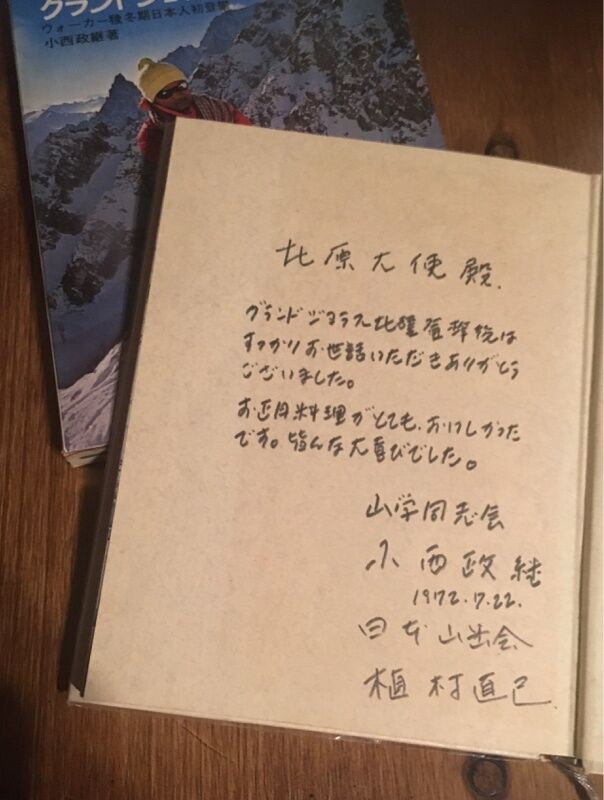 グランドジョ
ウォーカー稜冬期日本人初登攀
小西政継著
北原大使殿.
グランドジョラス北壁登攀後は
すっかりお世話いただきありがとう
ございました。
お正月料理がとても、おいしかった
です。皆んな大喜びでした。
山学同志会
小西政継
1972.7.22.
日本山岳会
植村直己